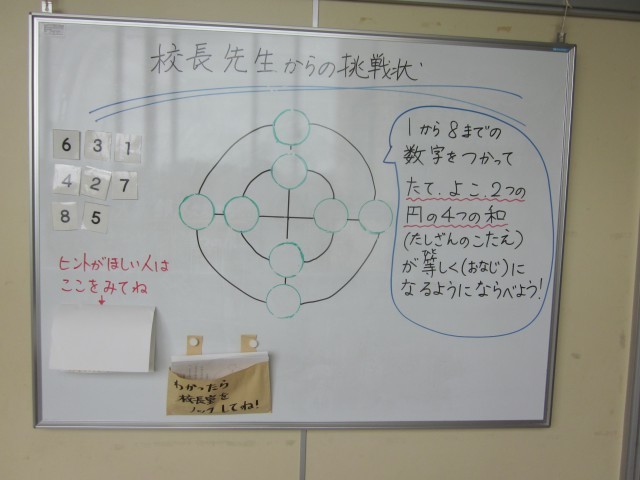 校長先生からの挑戦状
6 3 1
4 2 7
8 5
1から8までの
数字をつかって
たて、よこ、2つの
円の4つの和
(たしざんのこたえ)
が等しく(おなじ)に
ひと
なるようにならべよう!
ヒントがほしい人は
ここをみてね
わかったら
校長室を
ノックしてね!